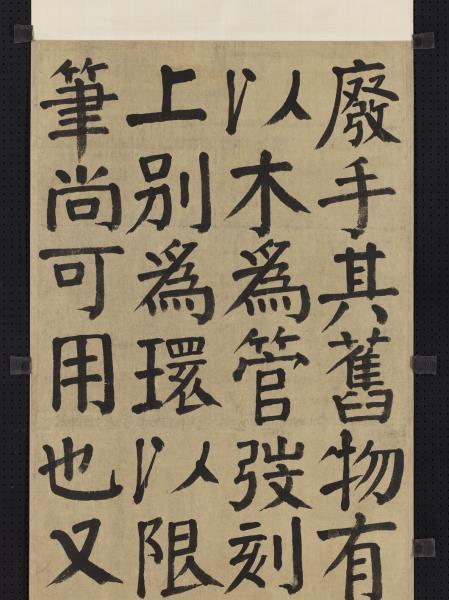 廢手其舊物有
以木爲管弢刻
上别爲環以限
筆尚可用也又